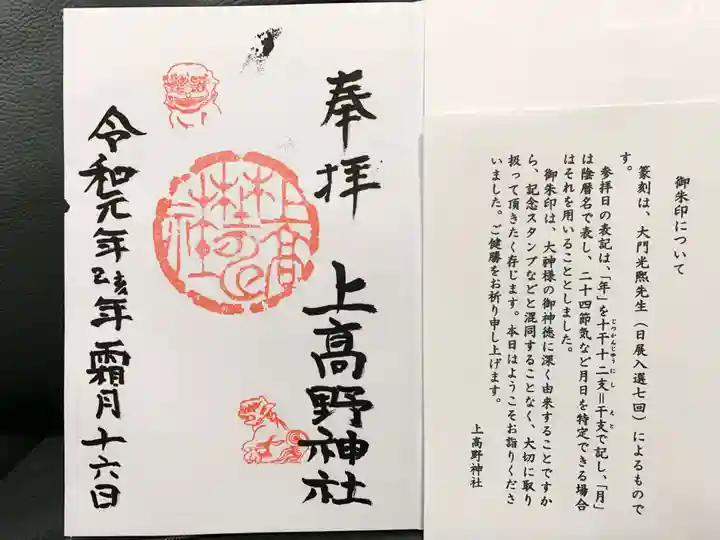 奉拝 上高野神社
令和元年己亥年霜月十六日
御朱印について
篆刻は、大門光熙先生（日展入選七回）によるもので
す。
参拝日の表記は、「年」を十干十二支＝干支で記し、「月」
じっかんじゅうにし えと
は陰暦名で表し、二十四節気など月日を特定できる場合
はそれを用いることとしました。
御朱印は、大神様の御神徳に深く由来することですか
ら、記念スタンプなどと混同することなく、大切に取り
扱って頂きたく存じます。本日はようこそお詣りくださ
いました。ご健勝をお祈り申し上げます。
上高野神社